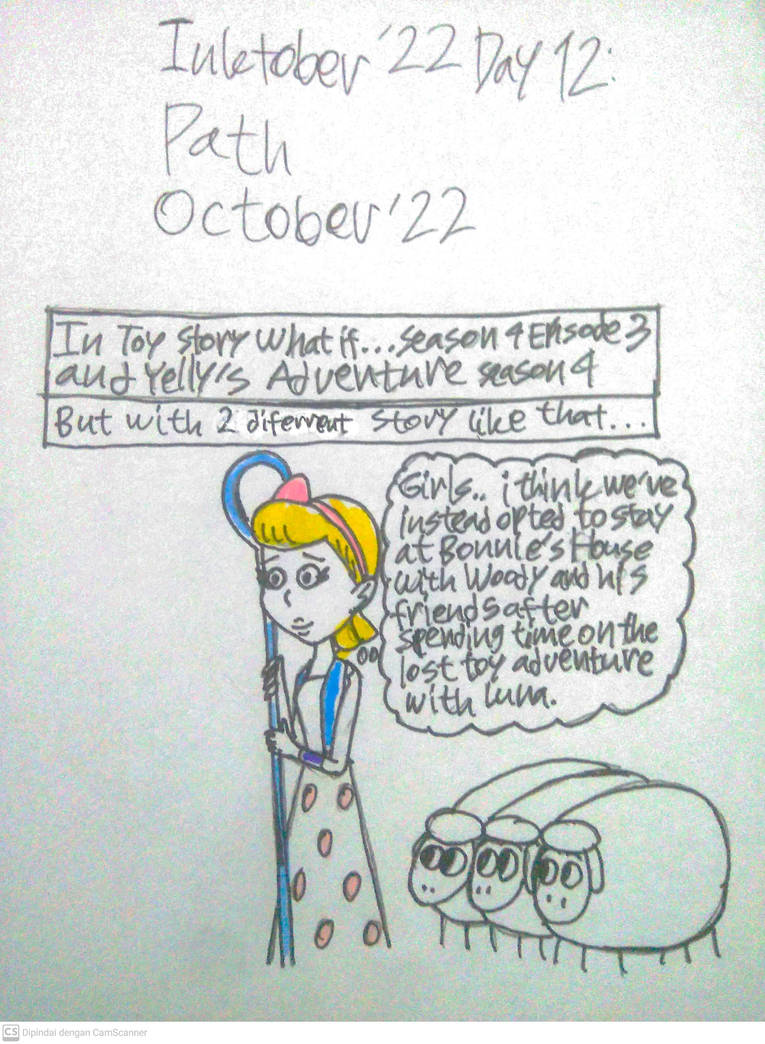 Inktober '22 Day 12:
Path
October '22
In Toy Story What if...season 4 Episode 3
and Yelly's Adventure season 4
But with 2 diferrent story like that...
Girls.. i think we've
instead opted to stay
at Bonnie's House
with Woody and his
friends after
spending time on the
lost toy adventure
with luna.
CS Dipindai dengan CamScanner